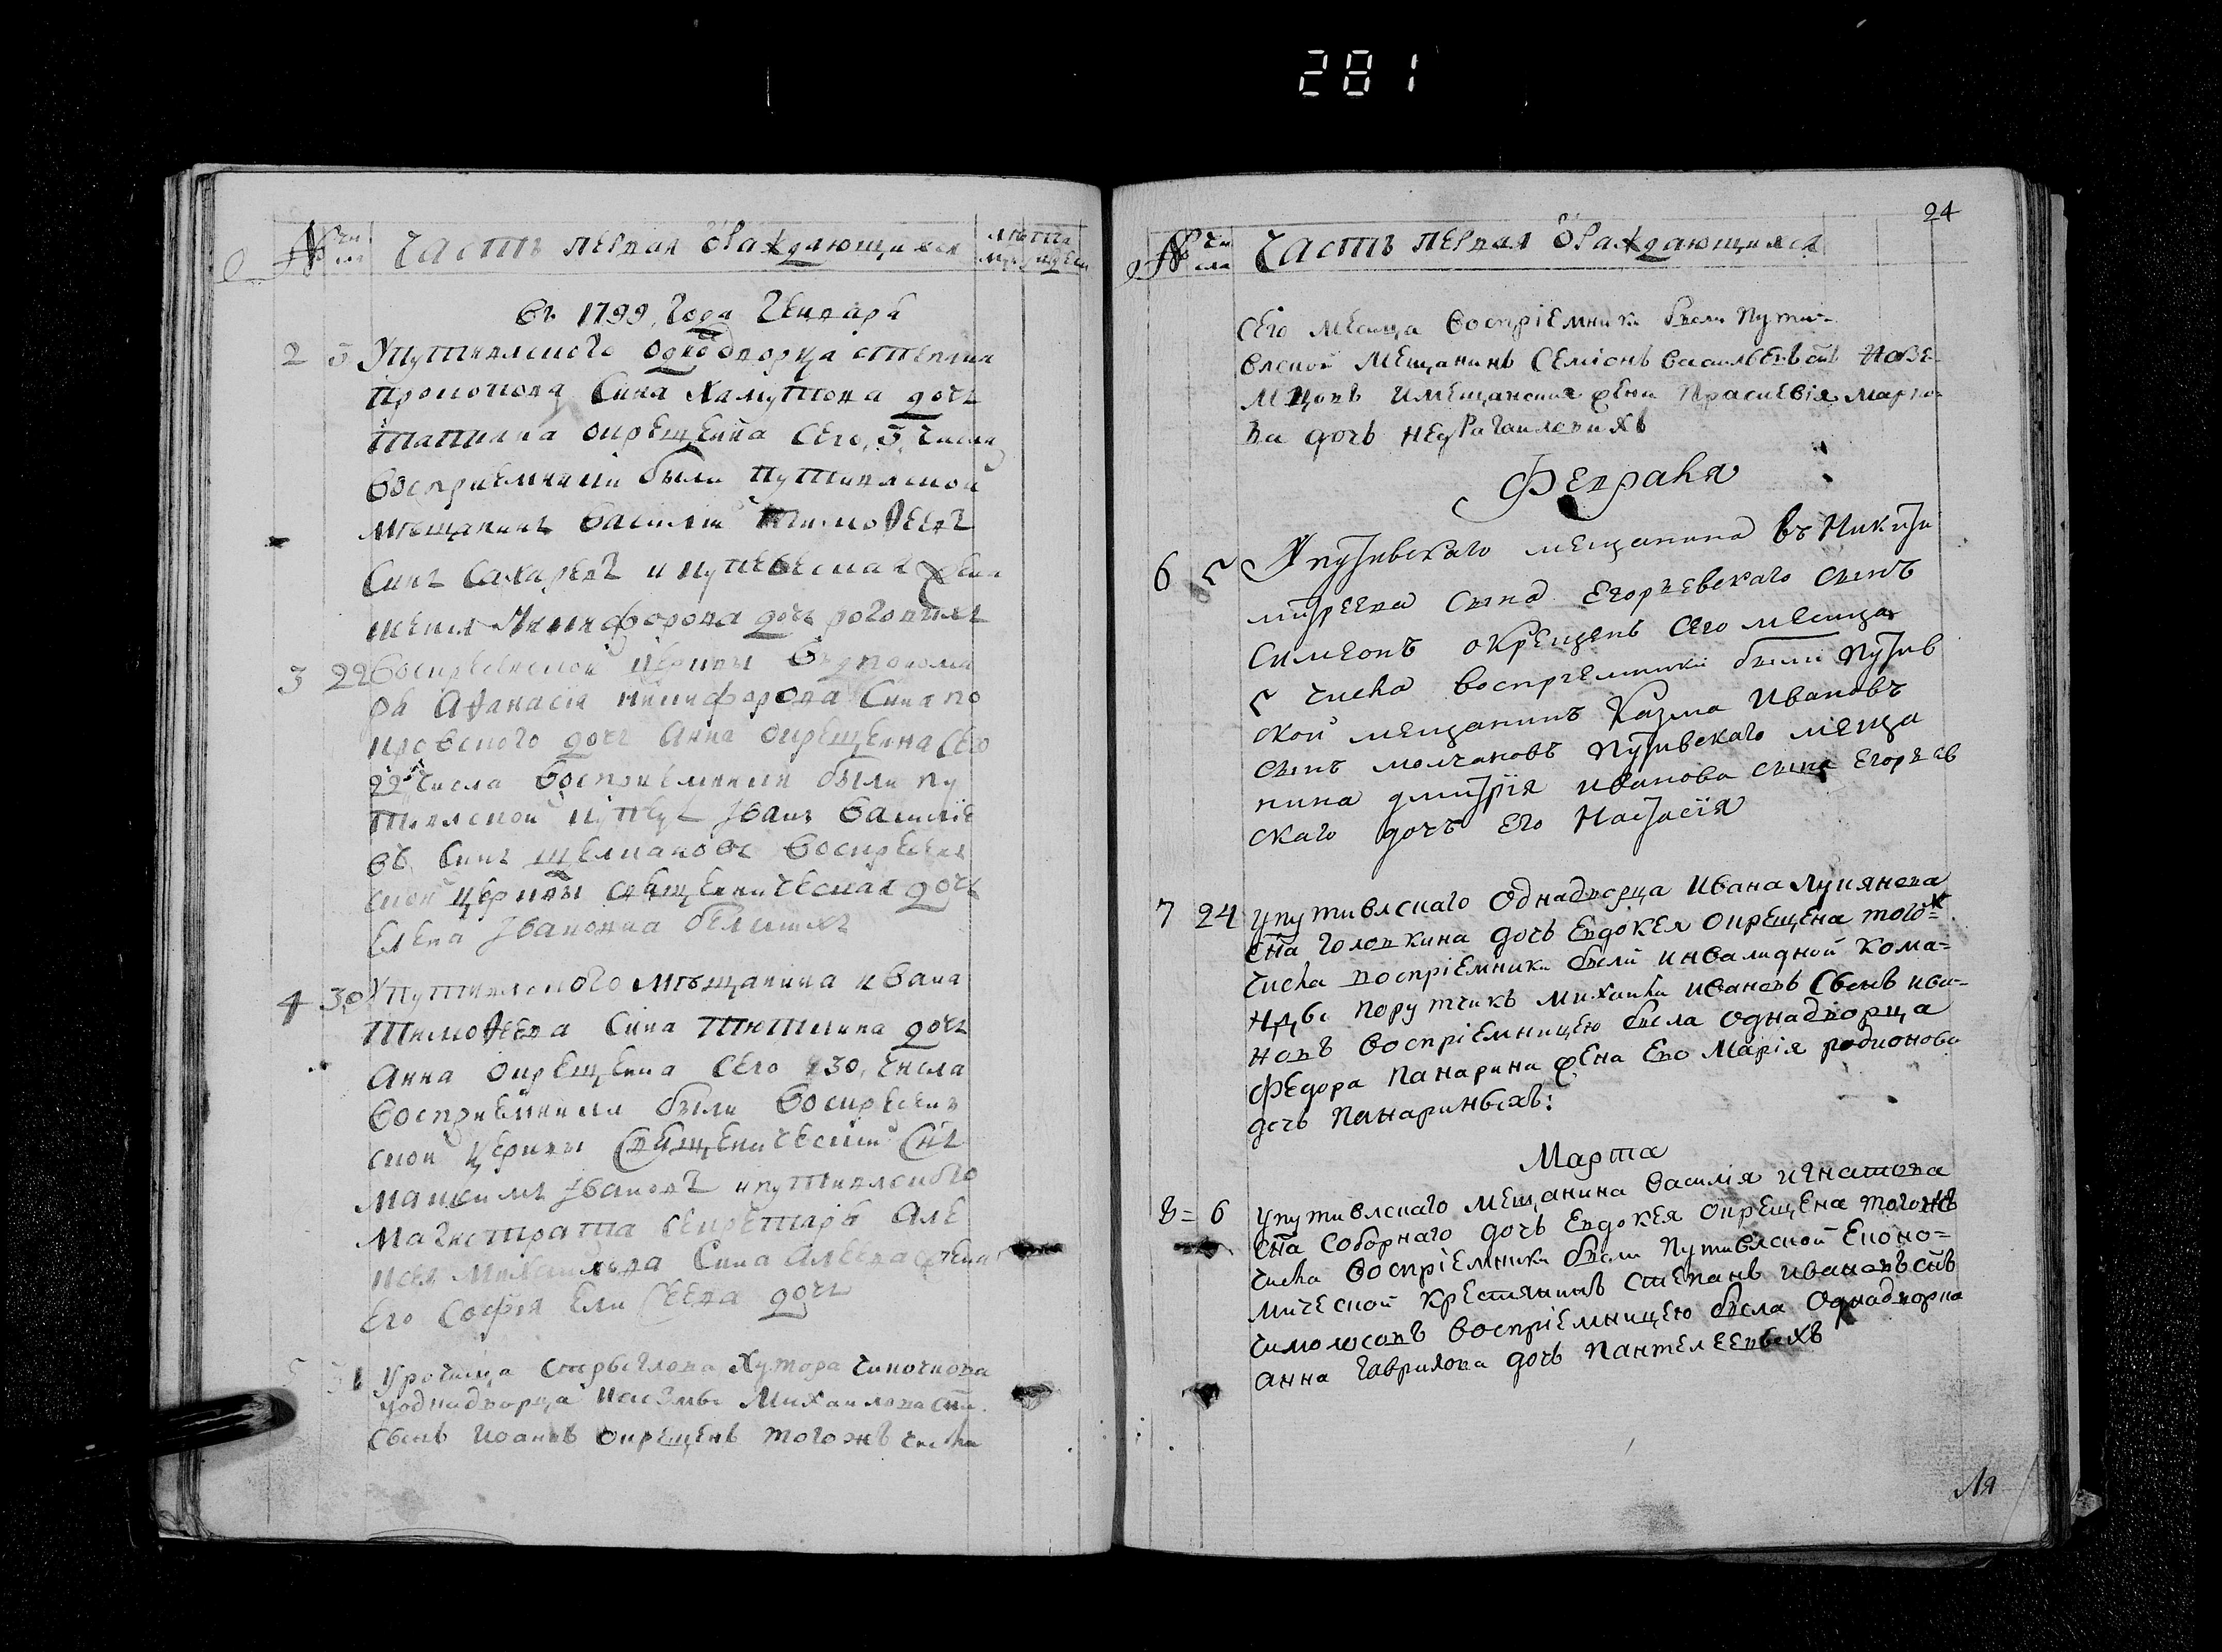 281
№ чи сла Часть первая ораждающихся лѣта
въ 1799 года генваря
2 5 У путивлского однодворца степана
прокопова сина хамутова дочь
татияна окрещена сего 5 числа
восприемники были путивлской
мѣщанинъ василий тимоѳеевъ
синъ сахаревъ и купеческая жена
никифорова дочь
3 22 воскресенской церкви
Аѳанасія никифорова сина по
кровского дочь анна окрещенна сего
22 числа восприемники были пу
тивлской купецъ Іванъ василіе
въ синъ воскресен
ской церкви священическая дочь
елена Івановна
4 30 У путивлского мѣщанина ивана
тимоѳеева сина дочь
анна окрещена сего 30 числа
восприемники были воскресен
ской церкви священический снъ
максимъ Івановъ и путивлского
магистрата секретаря але
ксея михайлова сина жена
его софія елисеева дочь
5 31 Урочища хутора
у однадворца михаилова сна
сынъ иоанъ окрещенъ тогожъ числа
24
№ чи сла Часть первая ораждающихся
сего месица воспріемники были пути-
влской мещанинъ семіонъ васильевъ снъ
и мещанская жена праскевія марко-
ва дочь
Февраля
6 5 У путивскаго мещанина въ Никити
митреева сына егоръевскаго сынъ
симеонъ окрещенъ сего месица
5 числа воспрїемники были путив
ской мещанинъ Казма Ивановъ
сынъ молчановъ путивскаго меща
нина дмитрїя иванова сына егоръев
скаго дочъ его Настасїя
7 24 у путивлскаго однадворца ивана лукянова
сна головкина дочь евдокея окрещена тогож
числа воспріемники были инвалидной кома-
нды порутчикъ михаила ивановъ сынъ ива-
новъ воспріемницею была однадворца
федора панарина жена ево марія родионова
дочь панариныхъ:
Марта
8 = 6 у путивлскаго мещанина василія игнатова
сна соборнаго дочь евдокея окрещена тогожъ
числа воспріемники были путивлской еконо-
мической крестянинъ степанъ ивановъ снъ
воспріемницею была однадворка
анна гаврилова дочь пантелеевыхъ